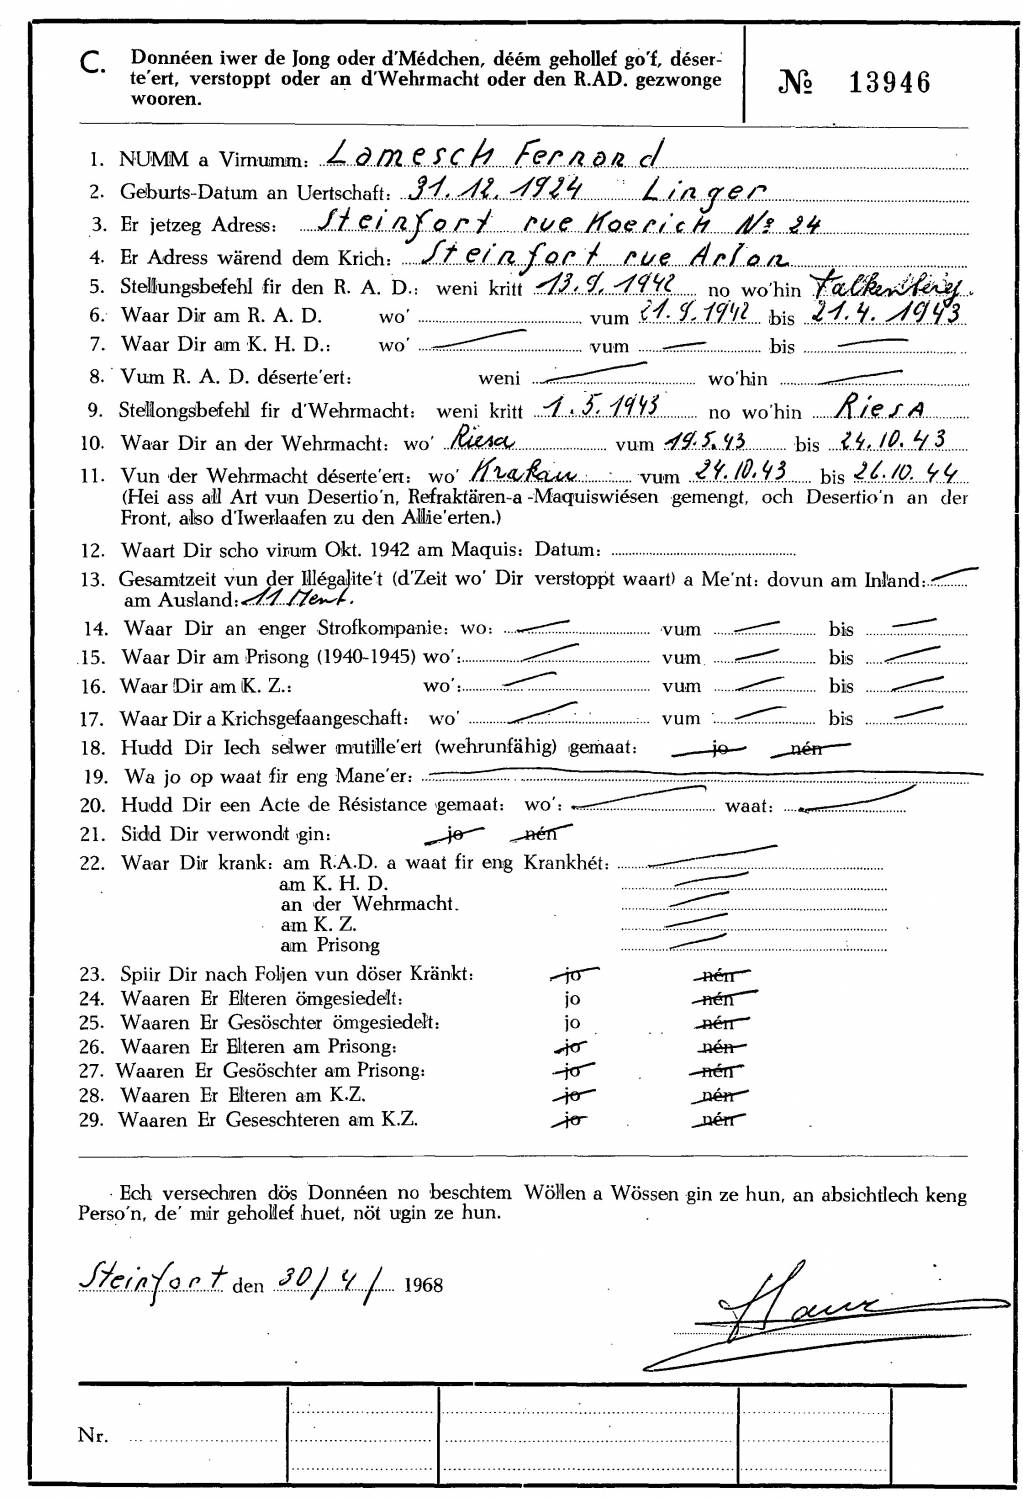 C. Donnéen iwer de Jong oder d'Médchen, déém gehollef go'f, déser-
te'ert, verstoppt oder an d'Wehrmacht oder den R.AD. gezwonge
wooren.
№ 13946
1. NUMM a Virnumm: Lamesch Fernand
2. Geburts-Datum an Uertschaft: 31.12.1924 Linger
3. Er jetzeg Adress: Steinfort rue Koerich Nº 24
4. Er Adress wärend dem Krich: Steinfort rue Arlon
5. Stellungsbefehl fir den R. A. D.: weni kritt 13.9.1942 no wo'hin Falkenberg
6. Waar Dir am R. A. D. wo' vum 21.9.1942 bis 21.4.1943
7. Waar Dir am K. H. D.: wo' vum bis
8. Vum R. A. D. déserte'ert: weni wo'hin
9. Stellongsbefehl fir d'Wehrmacht: weni kritt 1.5.1943 no wo'hin Riesa
10. Waar Dir an der Wehrmacht: wo' Riesa vum 19.5.43 bis 24.10.43
11. Vun der Wehrmacht déserte'ert: wo' Krakau vum 24.10.43 bis 26.10.44
(Hei ass all Art vun Desertio'n, Refraktären-a -Maquiswiésen gemengt, och Desertio'n an der
Front, also d'Iwerlaafen zu den Allie'erten.)
12. Waart Dir scho virum Okt. 1942 am Maquis: Datum:
13. Gesamtzeit vun der Illégalite't (d'Zeit wo' Dir verstoppt waart) a Me'nt: dovun am Inland:
am Ausland: 11 Ment.
14. Waar Dir an enger Strofkompanie: wo: vum bis
15. Waar Dir am Prisong (1940-1945) wo': vum bis
16. Waar Dir am K. Z.: wo': vum bis
17. Waar Dir a Krichsgefaangeschaft: wo' vum bis
18. Hudd Dir Iech selwer mutille'ert (wehrunfähig) gemaat: jo nén
19. Wa jo op waat fir eng Mane'er:
20. Hudd Dir een Acte de Résistance gemaat: wo': waat:
21. Sidd Dir verwondt gin: jo nén
22. Waar Dir krank: am R.A.D. a waat fir eng Krankhét:
am K. H. D.
an der Wehrmacht.
am K. Z.
am Prisong
23. Spiir Dir nach Foljen vun döser Kränkt: jo nén
24. Waaren Er Elteren ömgesiedelt: jo nén
25. Waaren Er Gesöschter ömgesiedelt: jo nén
26. Waaren Er Elteren am Prisong: jo nén
27. Waaren Er Gesöschter am Prisong: jo nén
28. Waaren Er Elteren am K.Z. jo nén
29. Waaren Er Geseschteren am K.Z. jo nén
Ech versechren dös Donnéen no beschtem Wöllen a Wössen gin ze hun, an absichtlech keng
Perso'n, de' mir gehollef huet, nöt ugin ze hun.
Steinfort den 30/4/ 1968
Nr.